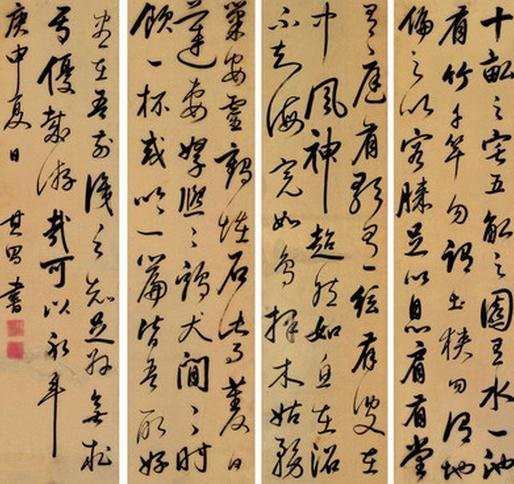 十畝之宅五畝之園有水一池
有竹千竿勿謂土狹勿謂地
偏足以容膝足以息肩有堂
有庭有歌有絃有叟在
中風神超然如魚在沼
不知海寬如鳥擇木姑務
巢安靈鶴怪石紫菱白
蓮妻孥熙熙雞犬閒閒時
飲一杯或吟一篇皆吾所好
盡在吾前識分知足外無求
焉優哉游哉可以永年
庚申夏日
其昌書